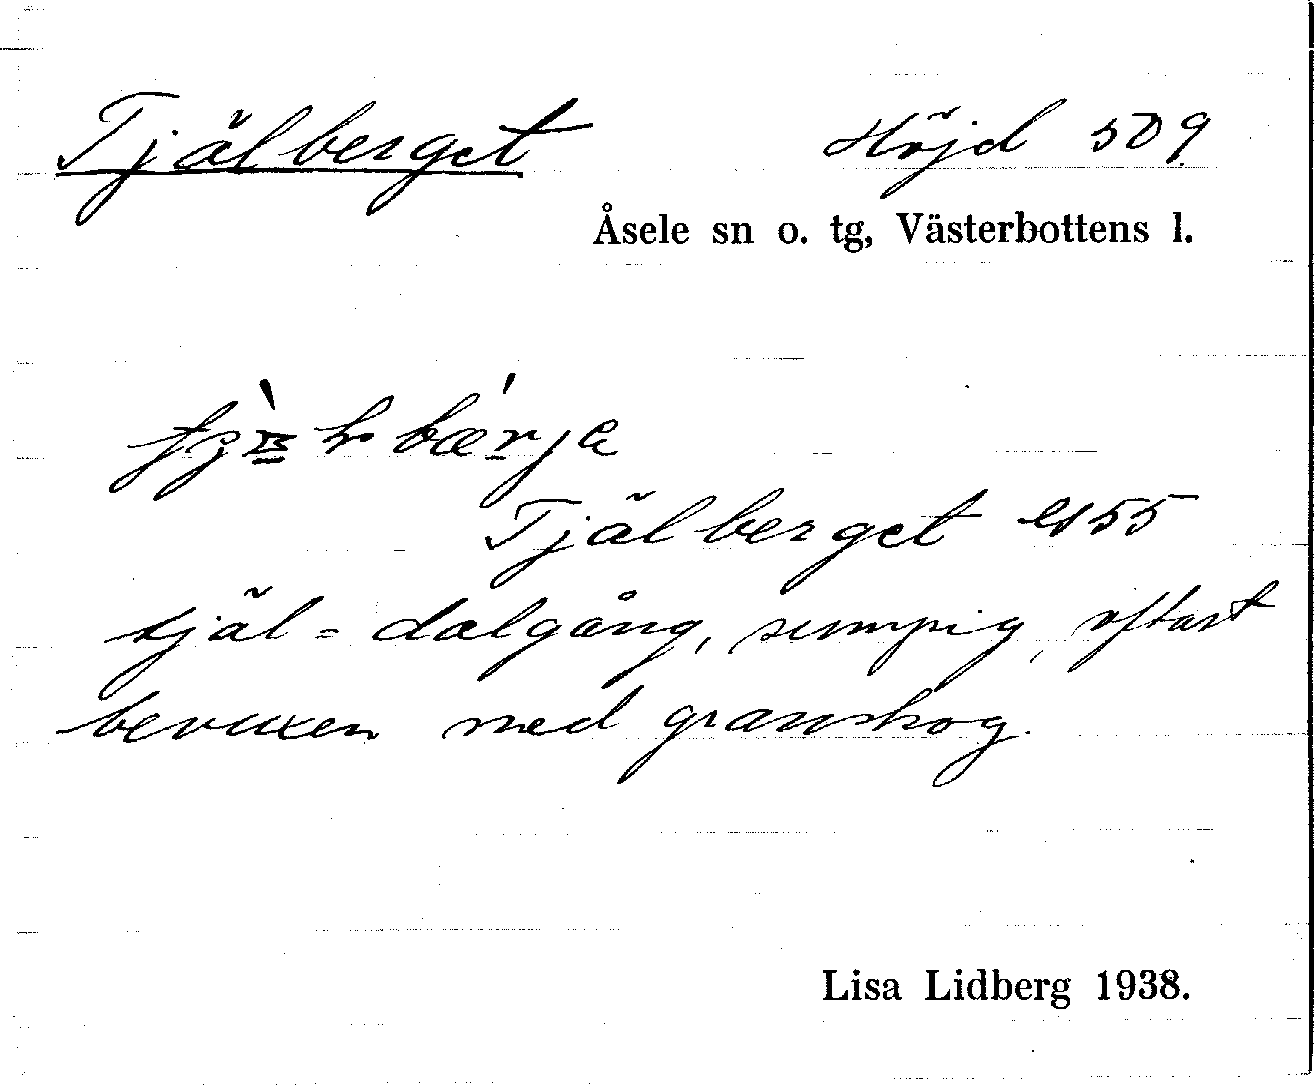 Tjälberget Höjd 509
Åsele sn o. tg, Västerbottens l.
bærja
Tjälberget 55
tjäl = dalgång, sumpig, oftast
bevuxen med granskog.
Lisa Lidberg 1938.